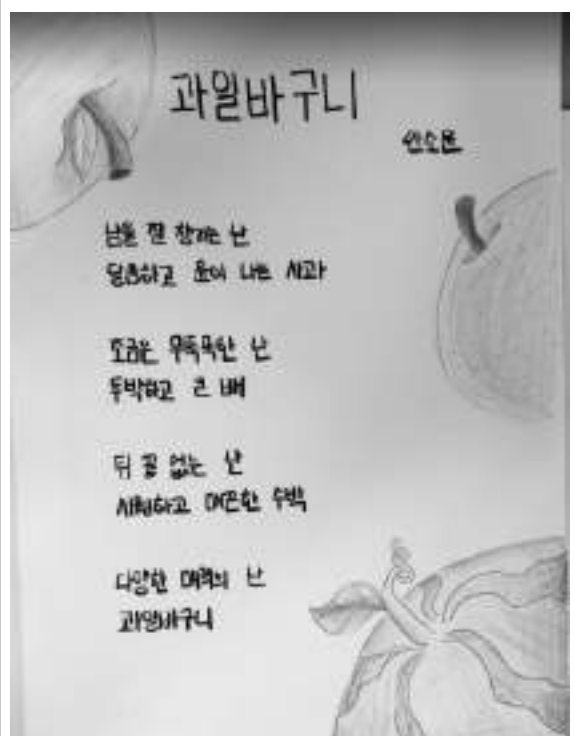 과일바구니
안소은
남을 잘 챙기는 난
달콤하고 윤이 나는 사과
조금은 무뚝뚝한 난
투박하고 큰 배
뒤 끝 없는 난
시원하고 매끈한 수박
다양한 매력의 난
과일바구니